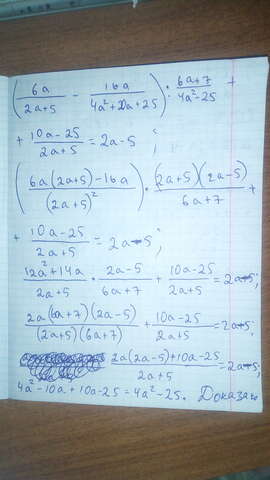 (6a/(2a+5) - 16a/(4a²+20a+25)) : (6a+7)/(4a²-25) +
+ (10a-25)/(2a+5) = 2a-5 ;
((6a(2a+5)-16a)/(2a+5)²) · ((2a+5)(2a-5))/(6a+7) +
+ (10a-25)/(2a+5) = 2a-5 ;
(12a²+14a)/(2a+5) · (2a-5)/(6a+7) + (10a-25)/(2a+5) = 2a-5 ;
(2a(6a+7)(2a-5))/((2a+5)(6a+7)) + (10a-25)/(2a+5) = 2a-5 ;
(2a(2a-5)+10a-25)/(2a+5) = 2a-5 ;
4a²-10a+10a-25 = 4a²-25.